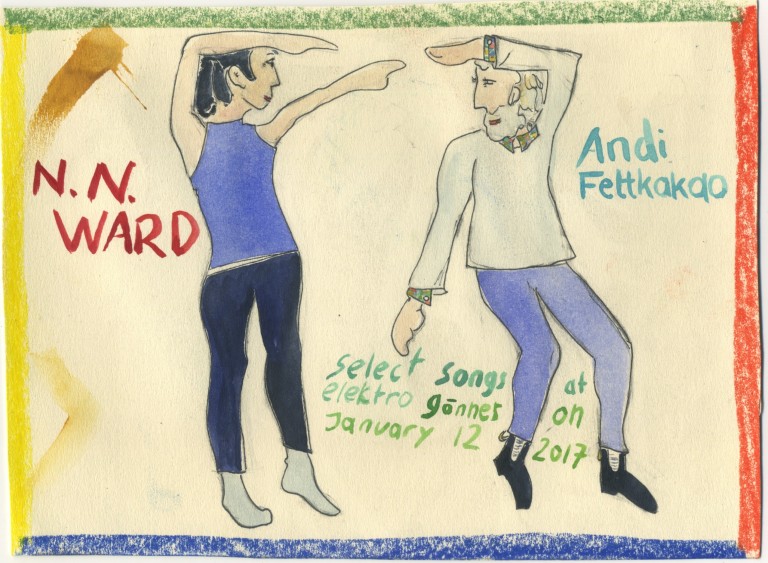 N. N.
WARD
Andi
Fettkakao
select songs at
elektro gönner on
January 12 2017